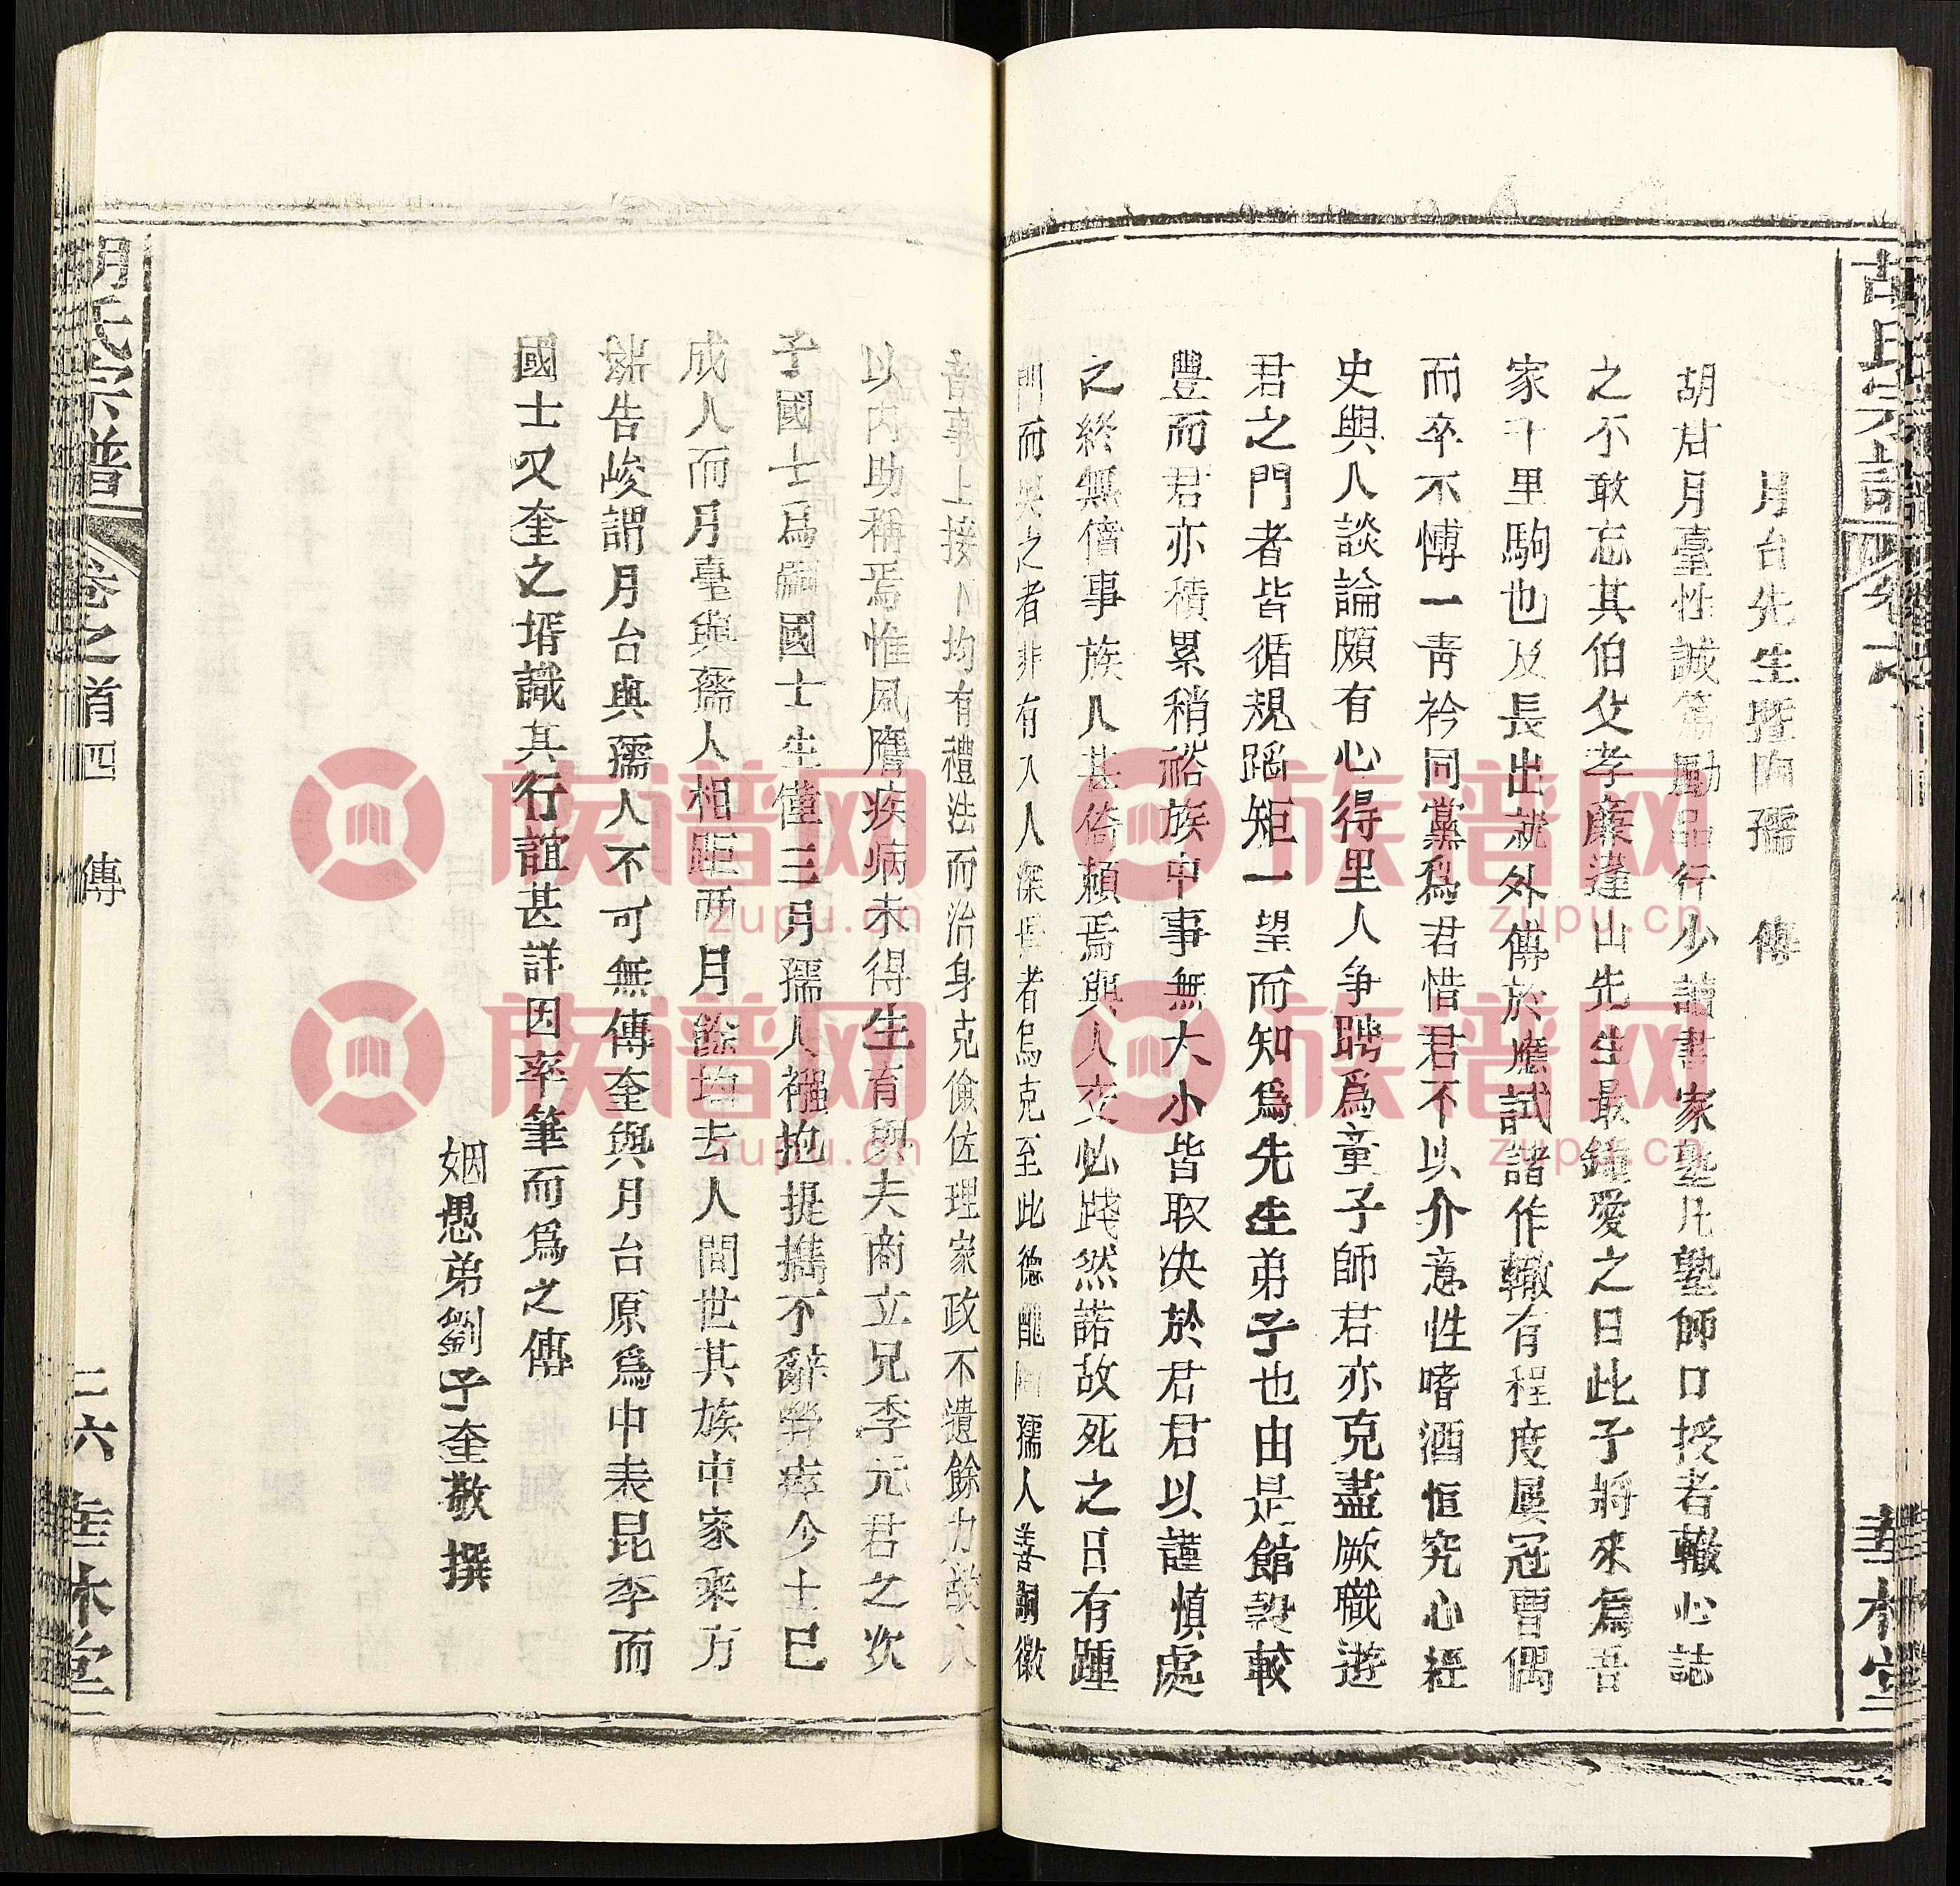 月台先生暨陶孺 傳
胡君月臺性誠篤勵品行少讀書家塾凡塾師口授者輙心誌
之不敢忘其伯父孝廉逢山先生最鍾愛之日此子將來爲吾
家千里駒也及長出就外傅於應試諸作輙有程度屢冠曹偶
而卒不慱一靑衿同黨爲君惜君不以介意性嗜酒恒究心經
史與人談論頗有心得里人争聘爲童子師君亦克盡厥職遊
君之門者皆循規蹈矩一望而知爲先生弟子也由是館穀較
豐而君亦積累稍裕族中事無大小皆取决於君君以謹慎處
之終無僨事族人甚倚頼焉與人交必踐然諾故死之日有踵
門而哭之者非有入人深厚者烏克至此德配陶孺人善嗣徽
音事上接下均有禮法而治身克儉佐理家政不遺餘力故人
以内助稱焉惟夙膺疾病未得生育與夫商立兄李元君之次
子國士爲嗣國士生僅三月孺人襁抱提携不辭勞瘁今士已
成人而月臺與孺人相距两月餘均去人間世其族中家乘方
告峻謂月台與孺人不可無傳奎與月台原爲中表昆季而
國士又奎之壻識其行誼甚詳因率筆而爲之傳
姻愚弟劉子奎敬撰
胡氏宗譜
卷之首四 傳
二六 垂休堂
族谱网
zupu.cn
族谱网
zupu.cn
族谱网
zupu.cn
族谱网
zupu.cn